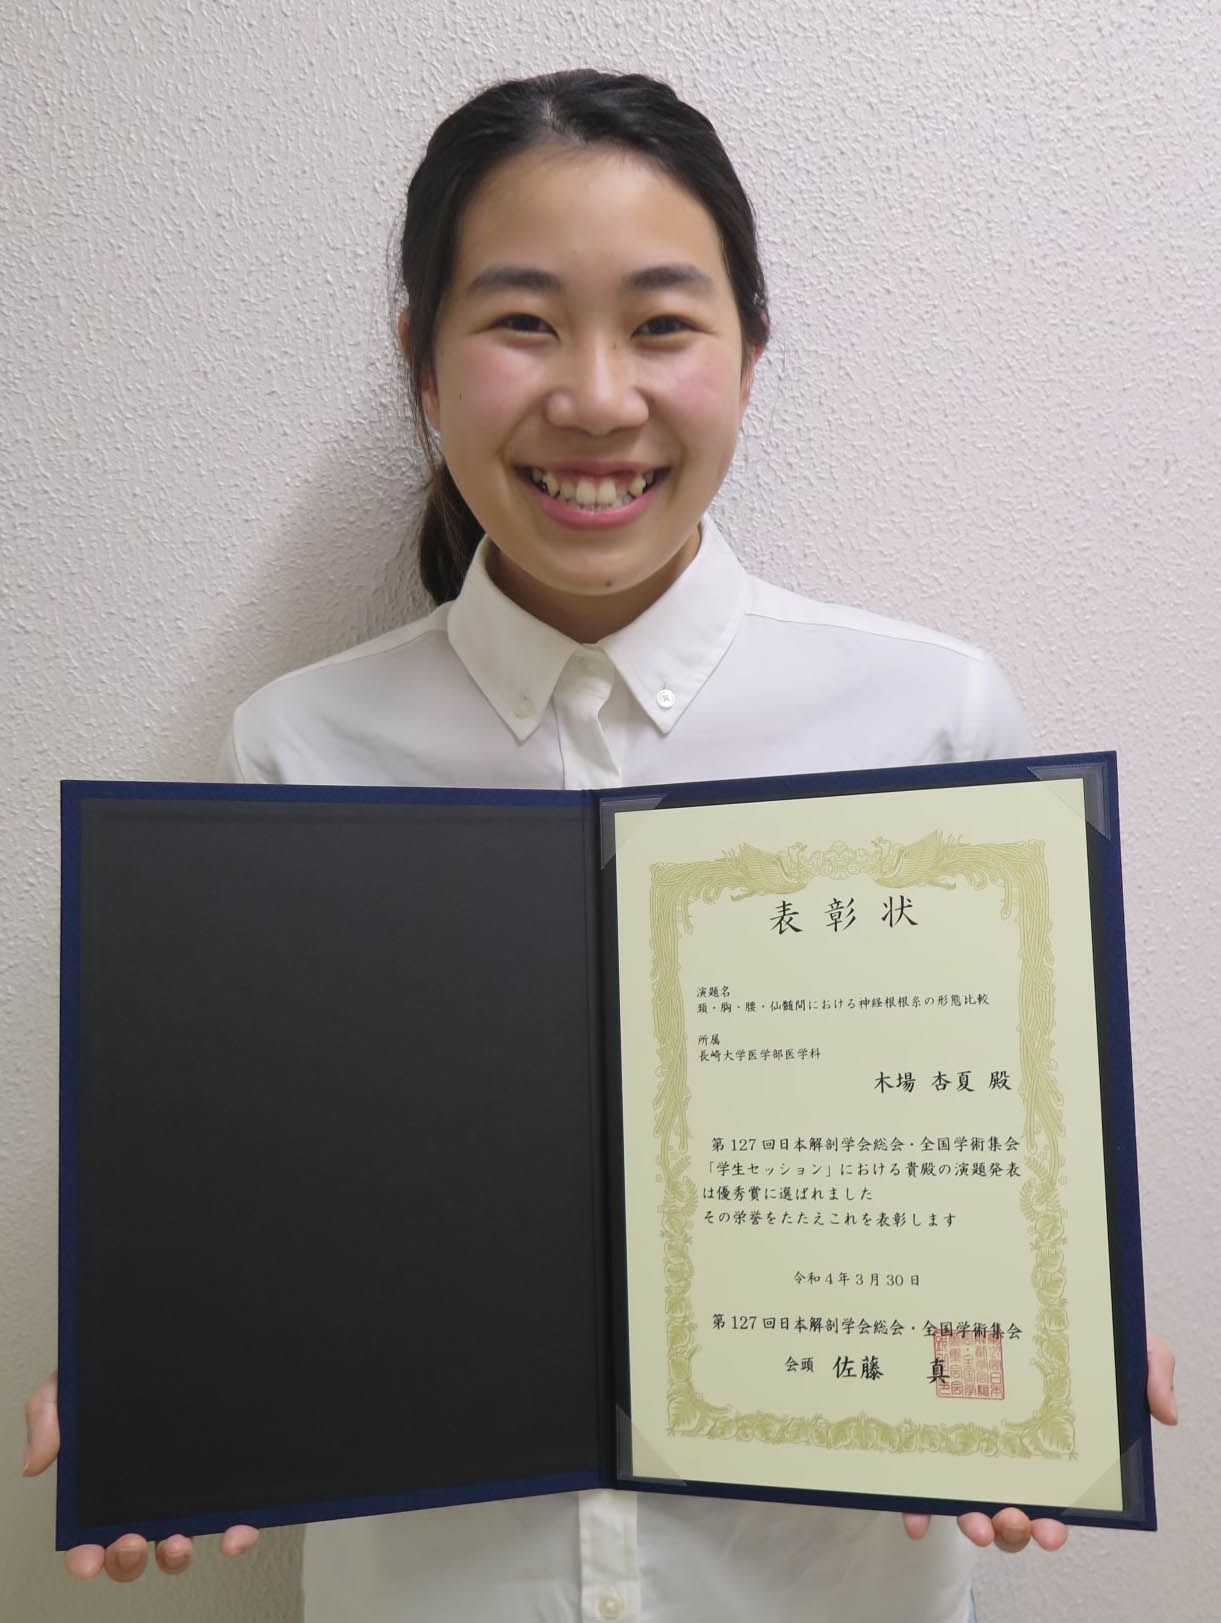 表彰状
演題名
頚・胸・腰・仙髄間における神経根根糸の形態比較
所属
長崎大学医学部医学科
木場 杏夏 殿
第127回日本解剖学会総会・全国学術集会
「学生セッション」における貴殿の演題発表
は優秀賞に選ばれました
その栄誉をたたえこれを表彰します
令和4年3月30日
第127回日本解剖学会総会・全国学術集会
会頭 佐藤 真